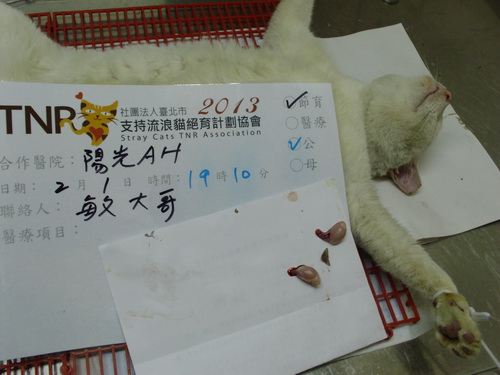 TNR 社團法人臺北市 2013
支持流浪貓絕育計劃協會
Stray Cats TNR Association
節育
醫療
公
母
合作醫院: 陽光AH
日期: 2月1日 時間: 19時10分
聯絡人: 敏大哥
醫療項目: